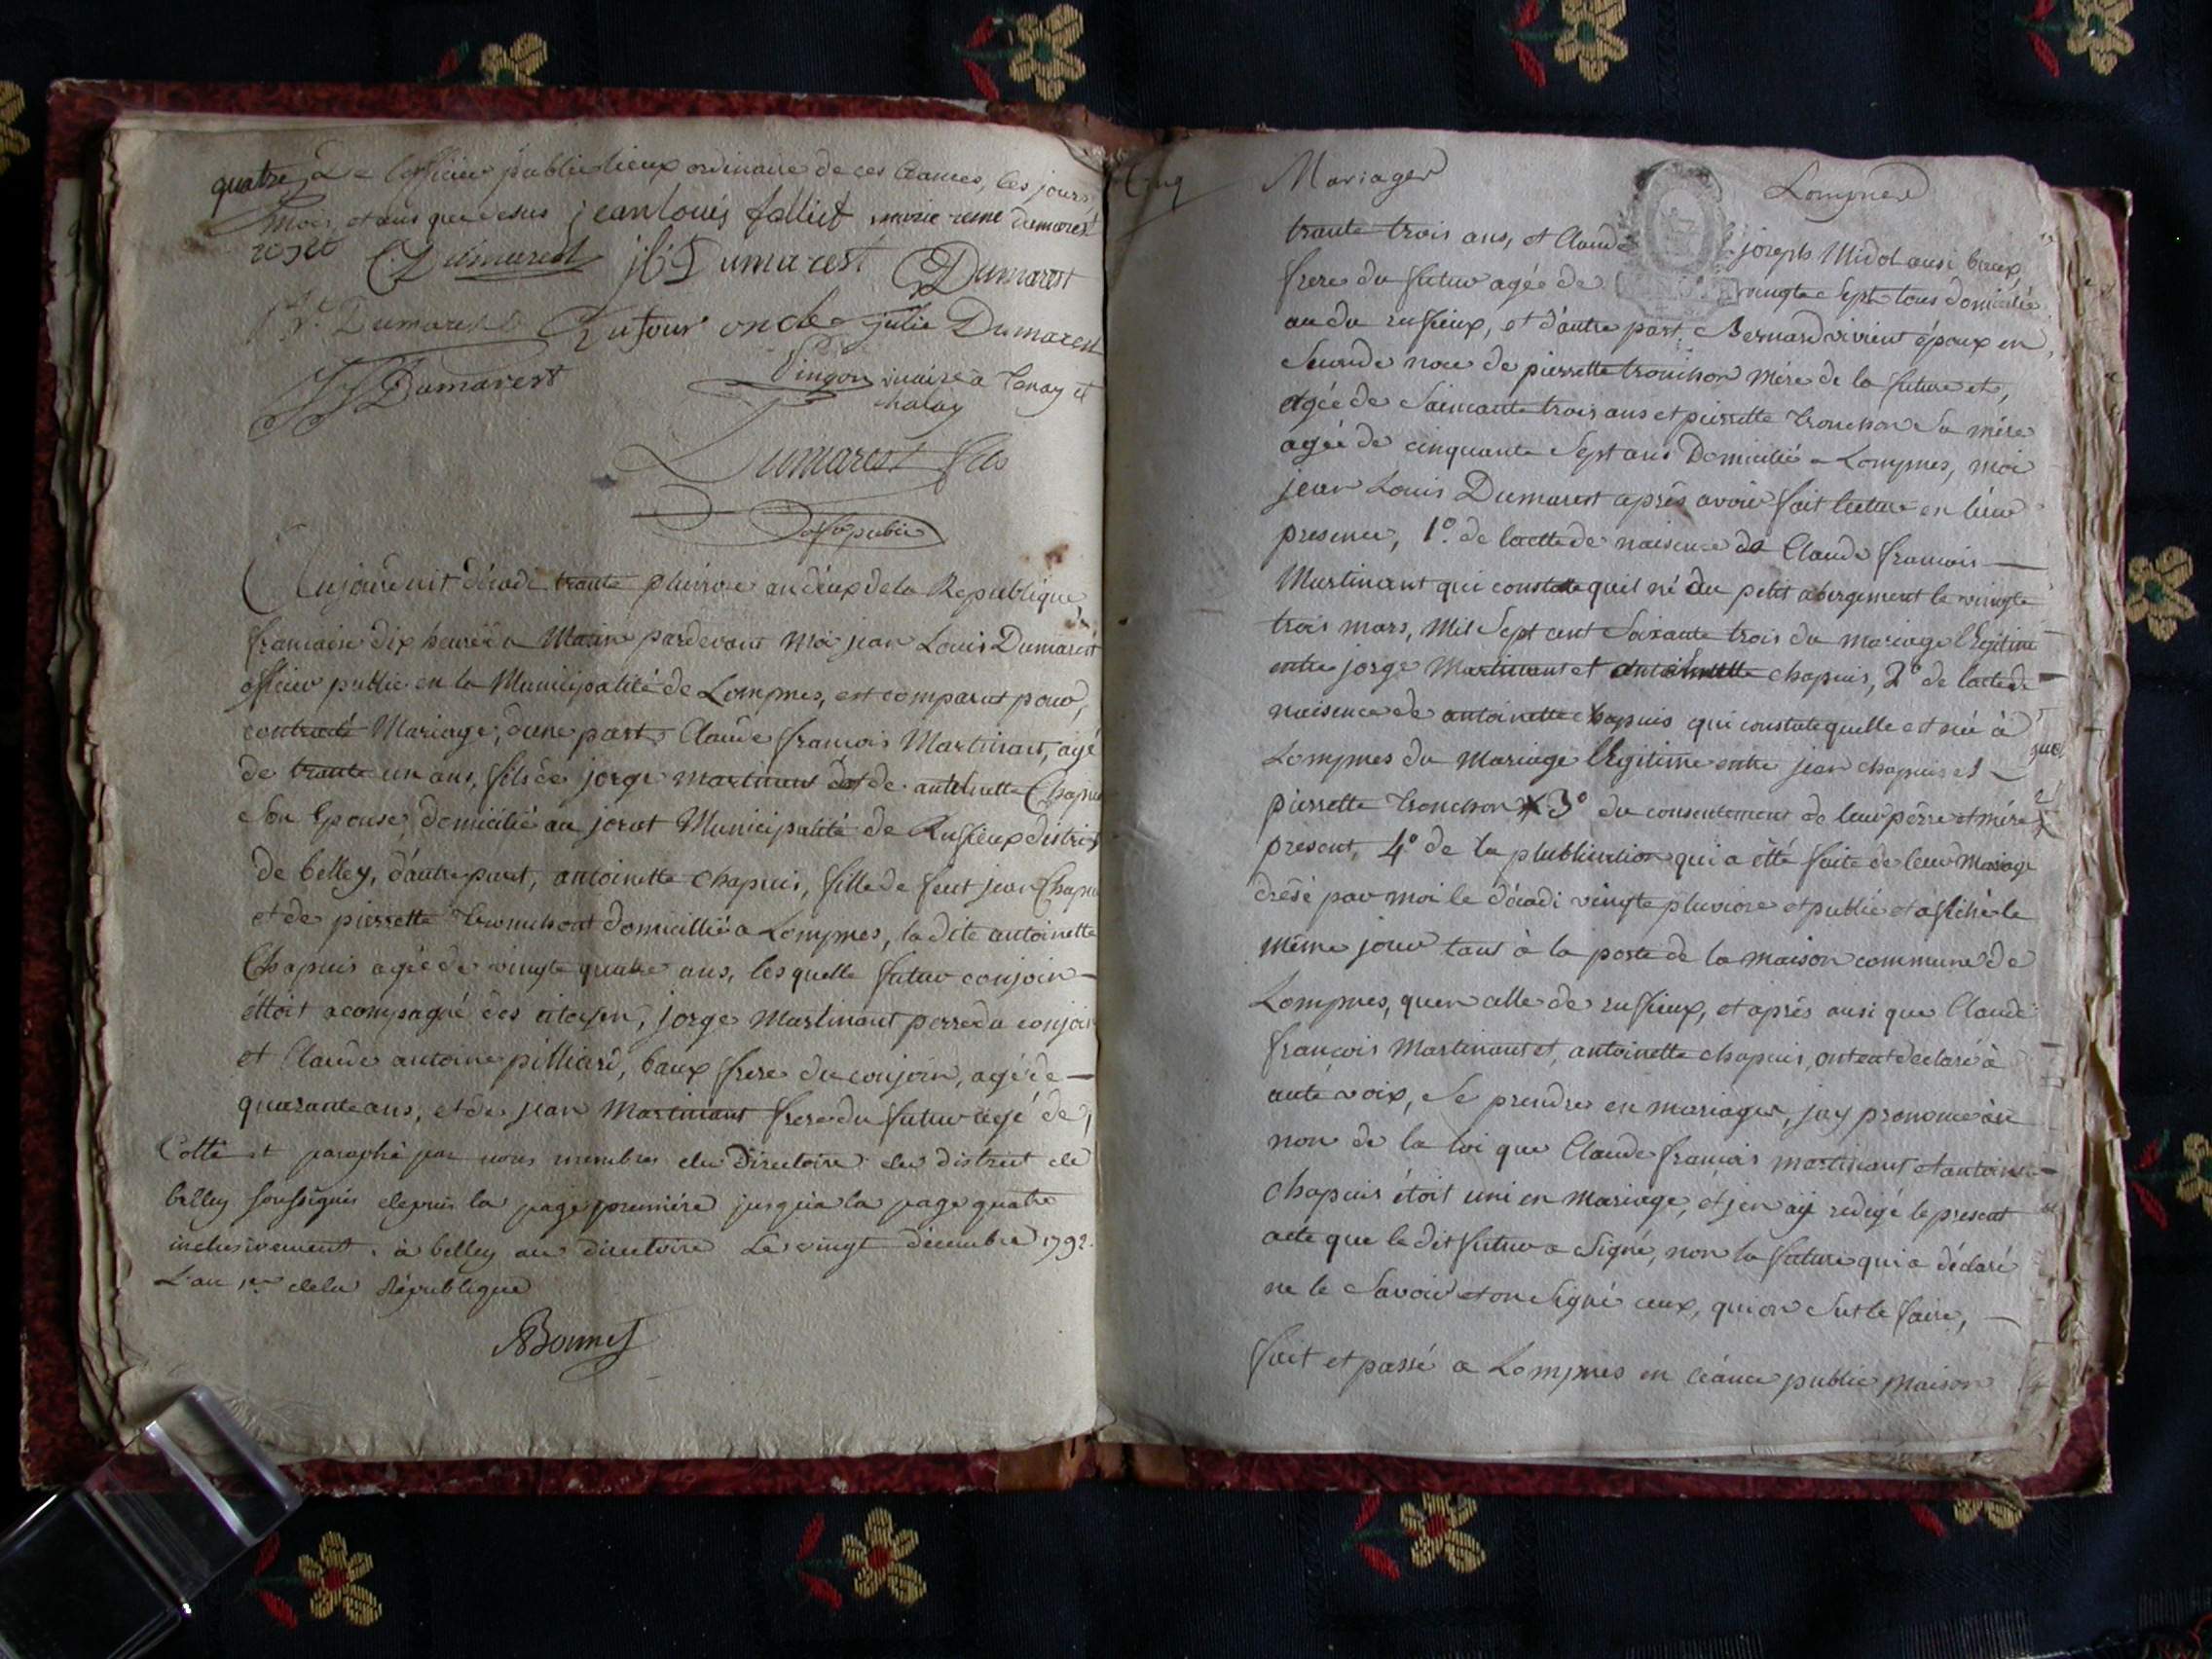 quatre
l'officier public lieux ordinaire de ces Ceances, les jours
mois, et ans que desus jean louis folliet marie reine dumarest
Dumarest jh Dumarest Dumarest
Dumarest Dufour oncle julie Dumarest
Dumarest Pingon maire à Tenay et
chaley
Dumarest fils
off public
Aujourduit décadi trante pluviose an deux de la Republique
francaise dix heures a Matin pardevant moi jean Louis Dumarest
officier public en la Municipalité de Lompnes, est comparut pour,
contracté Mariage, dune part, Claude francois Martinant, agé
de trante un ans, fils de jorge martinant et de antoinette Chapuis
Son Epouse, domicilié au jorat Municipalité de Ruffieux district
de belley, d'autre part, antoinette Chapuis, fille de feut jean Chapuis
et de pierrette tronchont domicillié a Lompnes, la dite antoinette
Chapuis agée de vingte quatre ans, lesquelle futur conjoin —
éttoit acompagné des citoyen, jorge Martinant perre du conjoin
et Claude antoine pilliard, baux frere du conjoin, agé de —
quarante ans, et de jean Martinant frere du futur agé de,
Cotté et paraphé par nous membres du Directoire du district de
belley soussignés depuis la page premiére jusqu'a la page quatre
inclusivement. à belley au directoire Le vingt decembre 1792.
L'an 1er dela République
Bonnet
Cinq Mariages Lompnes
trante trois ans, et Claude joseph Midol ausi baux
frere du futur agée de vingte Sept tous domicilié
au du ruffieux, et d'autre part, Bernard vivient époux en
Seconde noce de pierrette tronchon Mére de la future et,
agée de Soincante trois ans et pierrette tronchon Sa mére
agée de cinquante Sept ans Domicilié a Lompnes, moi
jean Louis Dumarest aprés avoir fait lecture en leur
presence, 1º. de lactte de naisence de Claude francois —
Martinant qui constatte quil né au petit abergement le vingte
trois mars, Mil Sept cent Soixante trois du mariage légitime
entre jorge Martinant et antoinette chapuis, 2º de lacte de —
naisence de antoinette chapuis qui constate quelle est née à
Lompnes du Mariage légitime entre jean chapuis et —
pierrette tronchon X 3º du consentement de leur pérre et mére
present, 4º de la plublication qui a étté faite de leur Mariage
drésé par moi le décadi vingte pluviose et publié et afiché le
même jour tant à la porte de la maison commune de
Lompnes, quen celle de ruffieux, et aprés ausi que Claude
françois Martinant et, antoinette chapuis, ont eut declaré à
aute voix, Se prendre en mariages, jay prononcé au
non de la loi que Claude francois martinant et antoine —
Chapuis étoit uni en Mariage, et jen ay redigé le present
acte que le dit futur a Signé, non la future qui a déclaré
ne le Savoir et on Signé ceux, qui on Sut le faire, —
fait et passé a Lompnes en céance public maison